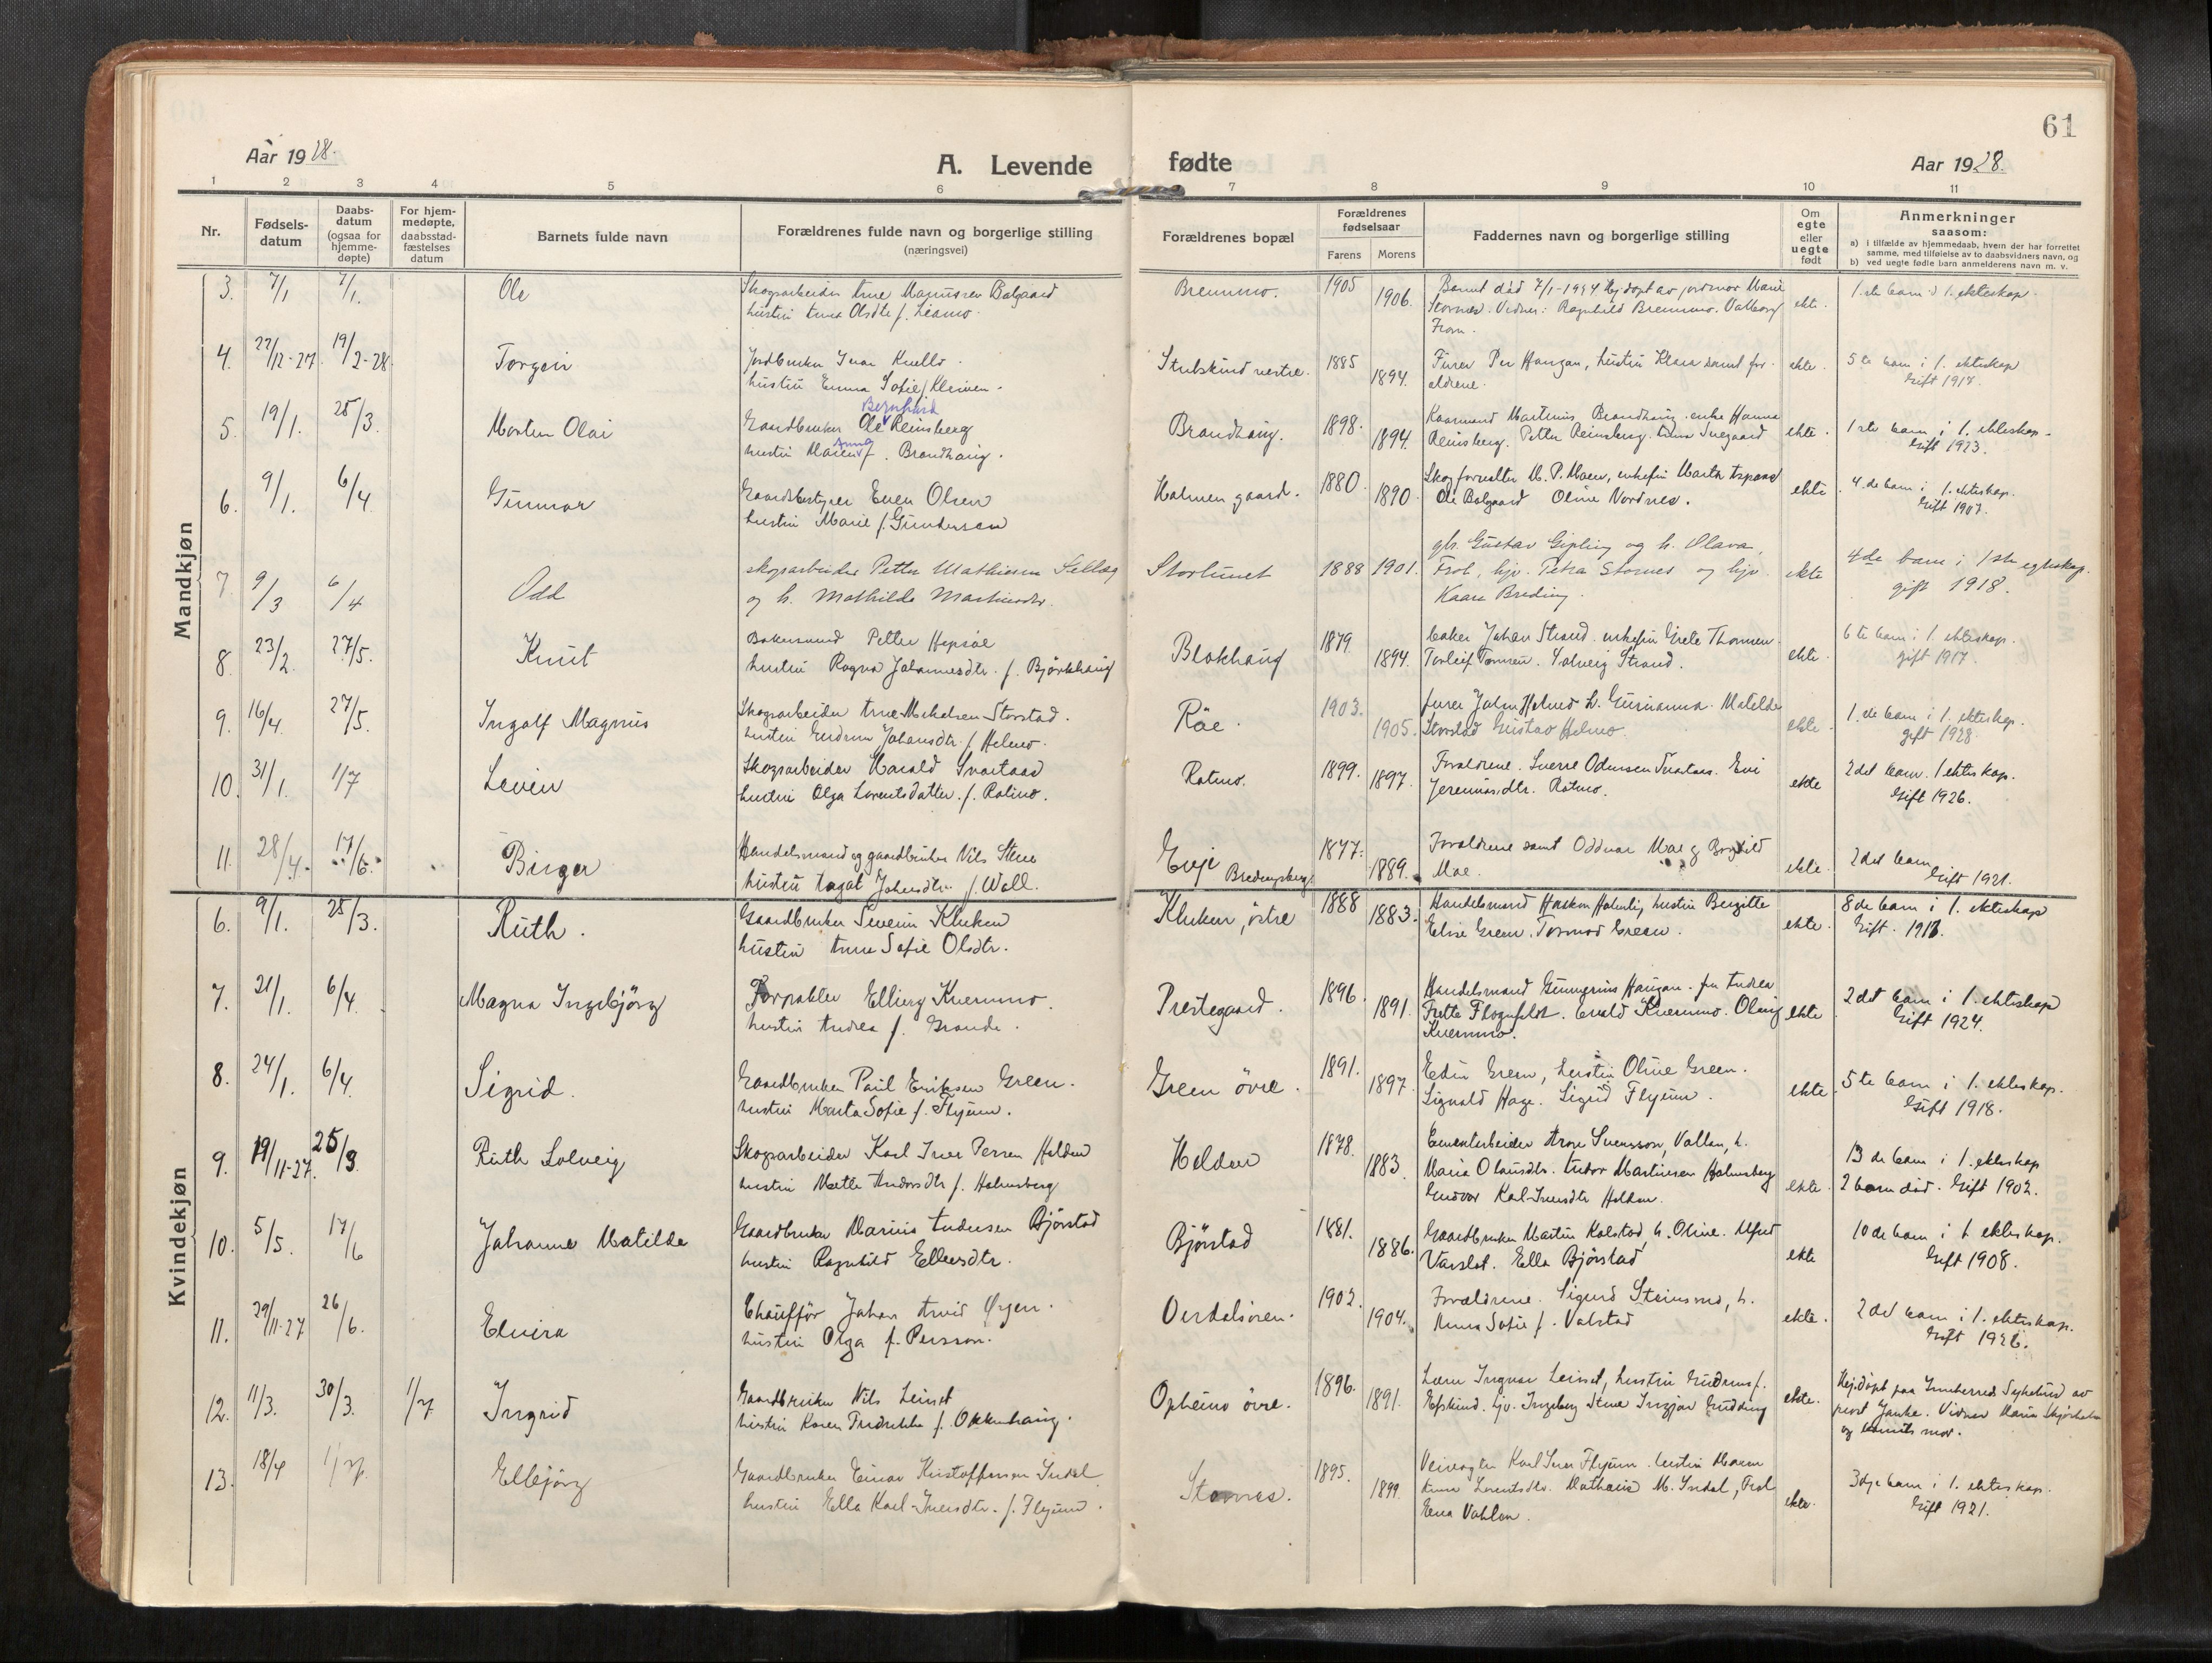 61
Aar 1928.
A. Levende fødte
Aar 1928.
1 2 3 4 5 6 7 8 9 10 11
Nr.
Fødselsdatum
Daabsdatum (ogsaa for hjemmedøpte)
For hjemmedøpte, daabsstadfæstelses datum
Barnets fulde navn
Forældrenes fulde navn og borgerlige stilling (næringsvei)
Forældrenes bopæl
Forældrenes fødselsaar
Farens Morens
Faddernes navn og borgerlige stilling
Om egte eller uegte født
Anmerkninger saasom:
a) i tilfælde av hjemmedaab, hvem der har forrettet samme, med tilføielse av to daabsvidners navn, og
b) ved uegte fødte barn anmelderens navn m. v.
Mandkjøn
3. 7/1 7/1. Ole
Skogsarbeider Arne Magnussen Balgaard
hustru Anna Olsdtr f. Leamo.
Bremmo. 1905 1906.
Barnet død 7/1- Hj.døpt av jordmor Marie
Stornæs. Vidner: Ragnhild Bremmo. Valborg
ekte.
1.ste barn i 1. ekteskap.
4. 27/12-27 19/2-28. Torgeir
Jordbruker Ivar Kvello.
hustru Emma Sofie f. Kleiven.
Stubskind vestre. 1885 1894.
Furer Per Haugan, hustru Klara samt for-
ældrene.
ekte.
5te barn i 1. ekteskap
Gift 1917.
5. 19/1. 25/3. Morten Olai
Bernhard
Gaardbruker Ole Reinsberg
Anna
hustru Maren f. Brandhaug.
Brandhaug. 1898. 1894.
Kaarmand Martinus Brandhaug. enke Hanna
Reinsberg. Petter Reinsberg. Anna Snegaard
ekte.
1ste barn i 1. ekteskap.
Gift 1923.
6. 9/1. 6/4. Gunnar
Gaardsbestyrer Even Olsen
hustru Marie f. Gundersen
Holmen gaard. 1880. 1890
Skogforvalter M. P. Moen, enkefru Marta
Ole Balgaard Oline Nordnes.
ekte
4.de barn i 1. ekteskap.
Gift 1907.
7 9/3 6/4 Odd
skogsarbeider Petter Mathiesen Sellæg
og h. Mathilde Martinsdtr.
Storlunet 1888 1901.
gbr. Gustav Gipling og h. Olava,
Frol, hjv. Petra Stornes og hjv.
Kaare Breding.
ekte
4de barn i 1ste egteskap.
gift 1918.
8 23/2. 27/5. Knut
Bakersvend Petter Hepsøe
hustru Ragna Johannesdtr. f. Bjørkhaug
Blokhaug 1879. 1894.
baker Johan Strand. enkefru Grete Thomsen.
Torleif Tomsen. Solveig Strand.
ekte.
6te barn i 1. ekteskap.
gift 1917.
9. 16/4. 27/5. Ingolf Magnus
Skogsarbeider Arne Mikalsen Storstad.
hustru Gudrun Johansdtr. f. Helmo.
Råe. 1903. 1905.
furer John Helmo h. Gurianna. Matilde
Storstad Gustav Helmo.
ekte.
1.de barn i 1. ekteskap.
gift 1928.
10. 31/1. 1/7 Levin
Skogsarbeider Harald Svartaas
hustru Olga Lorentsdatter. f. Rotmo.
Rotmo. 1899. 1897.
Forældrene. Sverre Odinsen Svartaas. Evi
Jeremiasdtr. Rotmo.
ekte
2det barn. 1 ekteskap.
Gift 1926.
11. 28/4. 17/6. Birger
Handelsmand og gaardbruker Nils Stene
hustru Aagot Johansdtr. f. Woll.
Evje Bredingsberg 1877. 1889.
Forældrene samt Oddvar Moe & Borghild
Moe.
ekte.
2det barn
Gift 1921.
Kvindekjøn
6. 9/1. 25/3. Ruth.
Gaardbruker Severin Kluken
hustru Anna Sofie Olsdtr.
Kluken, østre 1888 1883.
Handelsmand Haakon Holmli, hustru Bergitte
Elise Green. Tormod Green.
ekte.
8de barn i 1. ekteskap
Gift. 1913.
7. 21/1. 6/4. Magna Ingebjørg
Forpakter Elberg Kvernmo.
hustru Andrea f. Grande.
Prestegaard. 1896. 1891.
Handelsmand Gunnerius Haugan. fru Andrea
Frette Flognfeldt. Evald Kvernmo. Olaug
Kvernmo.
ekte
2det barn i 1. ekteskap
Gift 1924.
8. 24/1. 6/4. Sigrid.
Gaardbruker Paul Eriksen Green.
hustru Marta Sofie f. Flyum.
Green øvre. 1891. 1897.
Edin Green, hustru Oline Green.
Sigvald Hage. Sigrid Flyum.
ekte.
5te barn i 1. ekteskap.
Gift 1918.
9. 19/11-27. 25/3 Ruth Solveig
Skogsarbeider Karl Iver Persen Holden
hustru Mette Andorsdtr f. Holmsberg
Holden 1878. 1883.
Cementarbeider Aron Svensson, Vollen, h.
Maria Olausdtr. Andor Martinsen Holmsberg
Gudvor Karl-Iversdtr Holden.
ekte.
13de barn i 1. ekteskap
2 barn død. Gift 1902.
10. 5/5. 17/6 Johanne Matilde
Gaardbruker Marius Andersen Bjørstad
hustru Ragnhild Ellevsdtr.
Bjørstad 1881. 1886.
Gaardbruker Martin Kolstad, h. Oline. Alfred
Varslot. Ella Bjørstad
ekte
10de barn i 1. ekteskap.
Gift 1908.
11. 29/11-27 26/6. Elvira
Chauffør Johan Arvid Øyen.
hustru Olga f. Persson.
Verdalsøren. 1902. 1904.
Forældrene. Sigurd Steinsmo, h.
Anna Sofie f. Valstad
ekte.
2det barn i 1. ekteskap.
Gift 1926.
12. 11/3. 30/3. 1/7 Ingrid
Gaardbruker Nils Leinset
hustru Karen Fredrikke f. Okkenhaug.
Opheim øvre. 1896. 1891.
Lærer Ingvar Leinset, hustru Gudrun f.
Efskind. hjv. Ingeborg Stene Ingjar Gudding
ekte.
Hejdøpt paa Innherreds Sykehus av
prost Janke. Vidner Maria Skjørholm
og barnets mor.
13. 18/4 1/7. Ellbjørg
Gaardbruker Einar Kristoffersen Indal
hustru Ella Karl-Iversdtr. f. Flyum.
Stornes. 1895. 1899.
Veivogter Karl Iver Flyum. hustru Maren
Anna Lorentsdtr. Mathæus M. Indal, Frol
Enea Vohlen.
ekte.
3dje barn i 1. ekteskap.
Gift 1921.